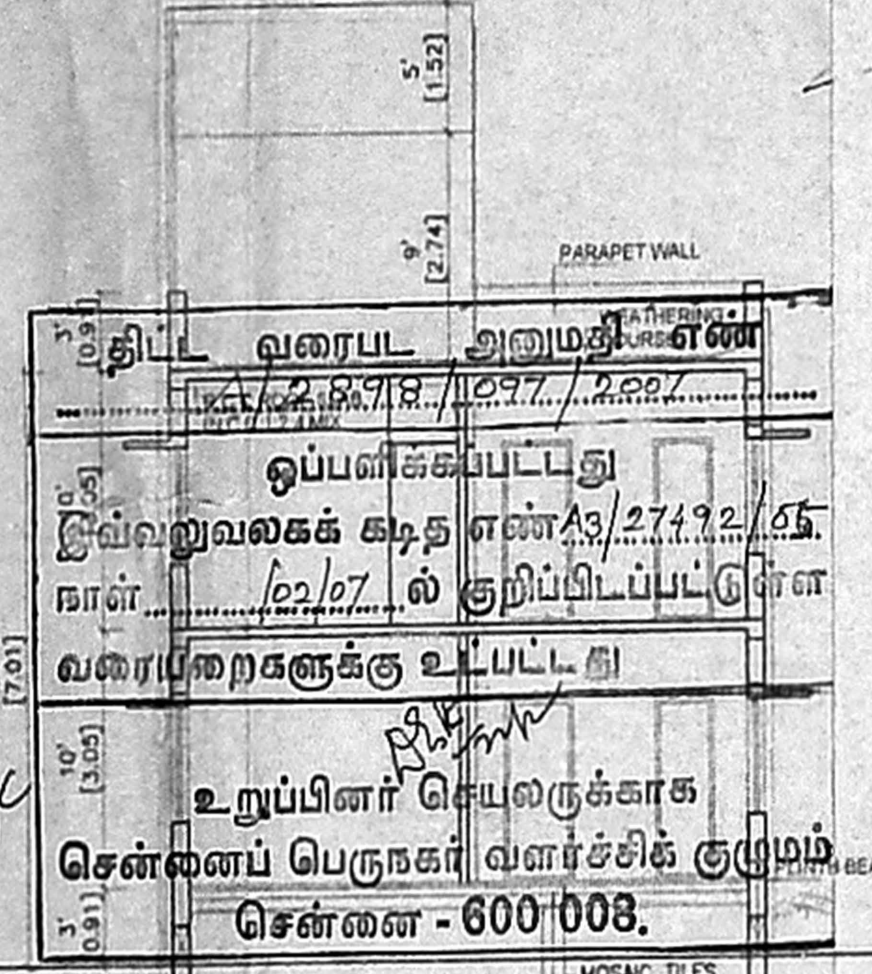 5'
[1.52]
9'
[2.74]
PARAPET WALL
WEATHERING
3'
[0.91]
திட்ட வரைபட அனுமதி எண்
A/2898/097/2007
ஒப்பளிக்கப்பட்டது
இவ்வலுவலகக் கடித எண் A3/27492/05
நாள்............/02/07...ல் குறிப்பிடப்பட்டுள்ள
வரையறைகளுக்கு உட்பட்டது
[7.01]
10'
[3.05]
உறுப்பினர் செயலருக்காக
சென்னைப் பெருநகர் வளர்ச்சிக் குழுமம்
சென்னை - 600 008.
3'
0.91]
MOSAIC TILES